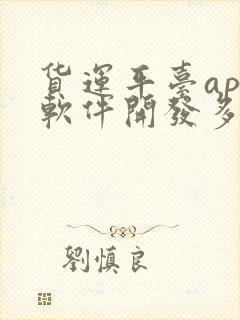 貨運平臺ap
軟件開發多
劉慎良